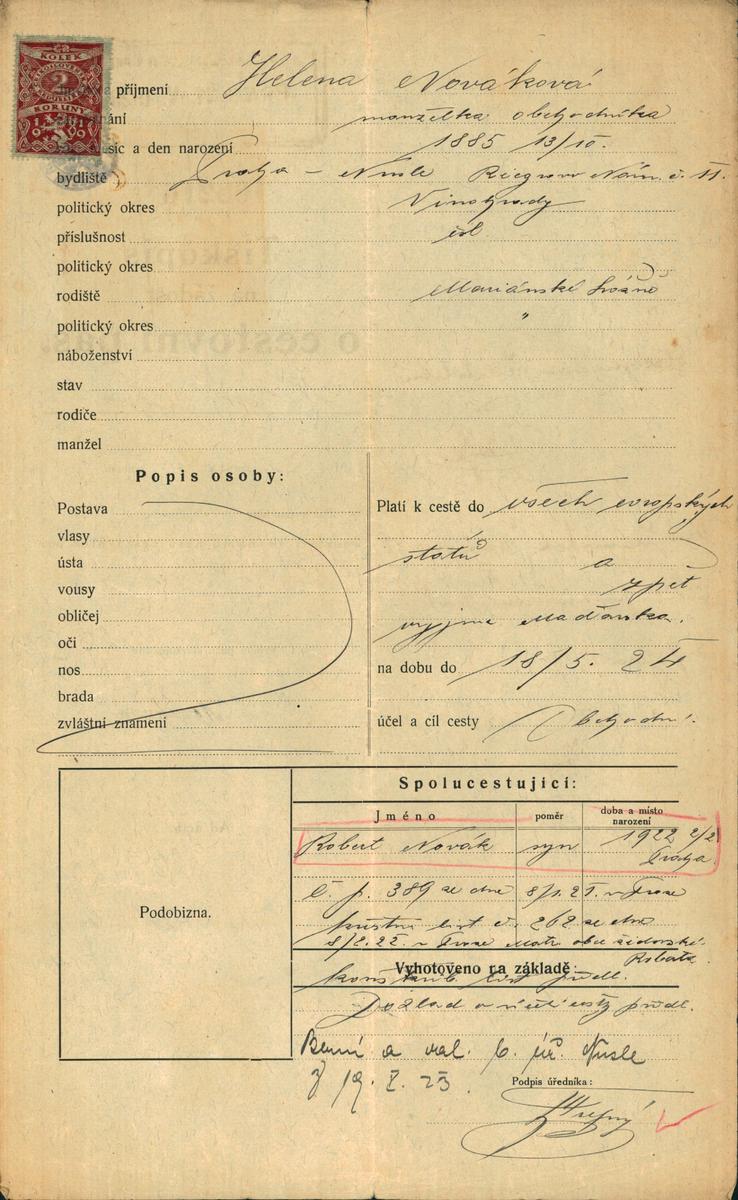 KOLEK
2
KORUNY
příjmení Helena Nováková
manželka obchodníka
síc a den narození 1885 13/10.
bydliště Praha - Nusle Riegrovo Nám. č. 11.
politický okres Vinohrady
příslušnost
politický okres
rodiště Mariánské Lázně
politický okres "
náboženství
stav
rodiče
manžel
Popis osoby:
Postava
vlasy
ústa
vousy
obličej
oči
nos
brada
zvláštní znamení
Platí k cestě do všech evropských
států a
zpět
vyjma Maďarska.
na dobu do 18/5. 24
účel a cíl cesty Obchodní.
Spolucestující:
Jméno poměr doba a místo narození
Robert Novák syn 1922 2/2 Praha
Č. p. 389 ze dne 8/1.21. v Praze
křestní list č. 262 ze dne
8/2.22. v Praze Matr. obce židovské.
Roberta
Vyhotoveno na základě:
list předl.
Doklad o účelu cesty předl.
Berní a val. b. úř. Nusle
z 19. I. 23.
Podobizna.
Podpis úředníka: